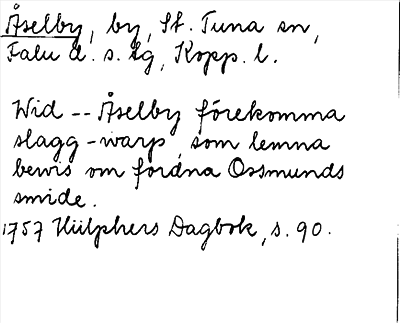 Åselby, by, St. Tuna sn,
Falu d. s. lg, Kopp. l.
Wid -- Åselby förekomma
slagg-warp, som lemna
bewis om fordna Ossmunds
smide.
1757 Hülphers Dagbok, s. 90.